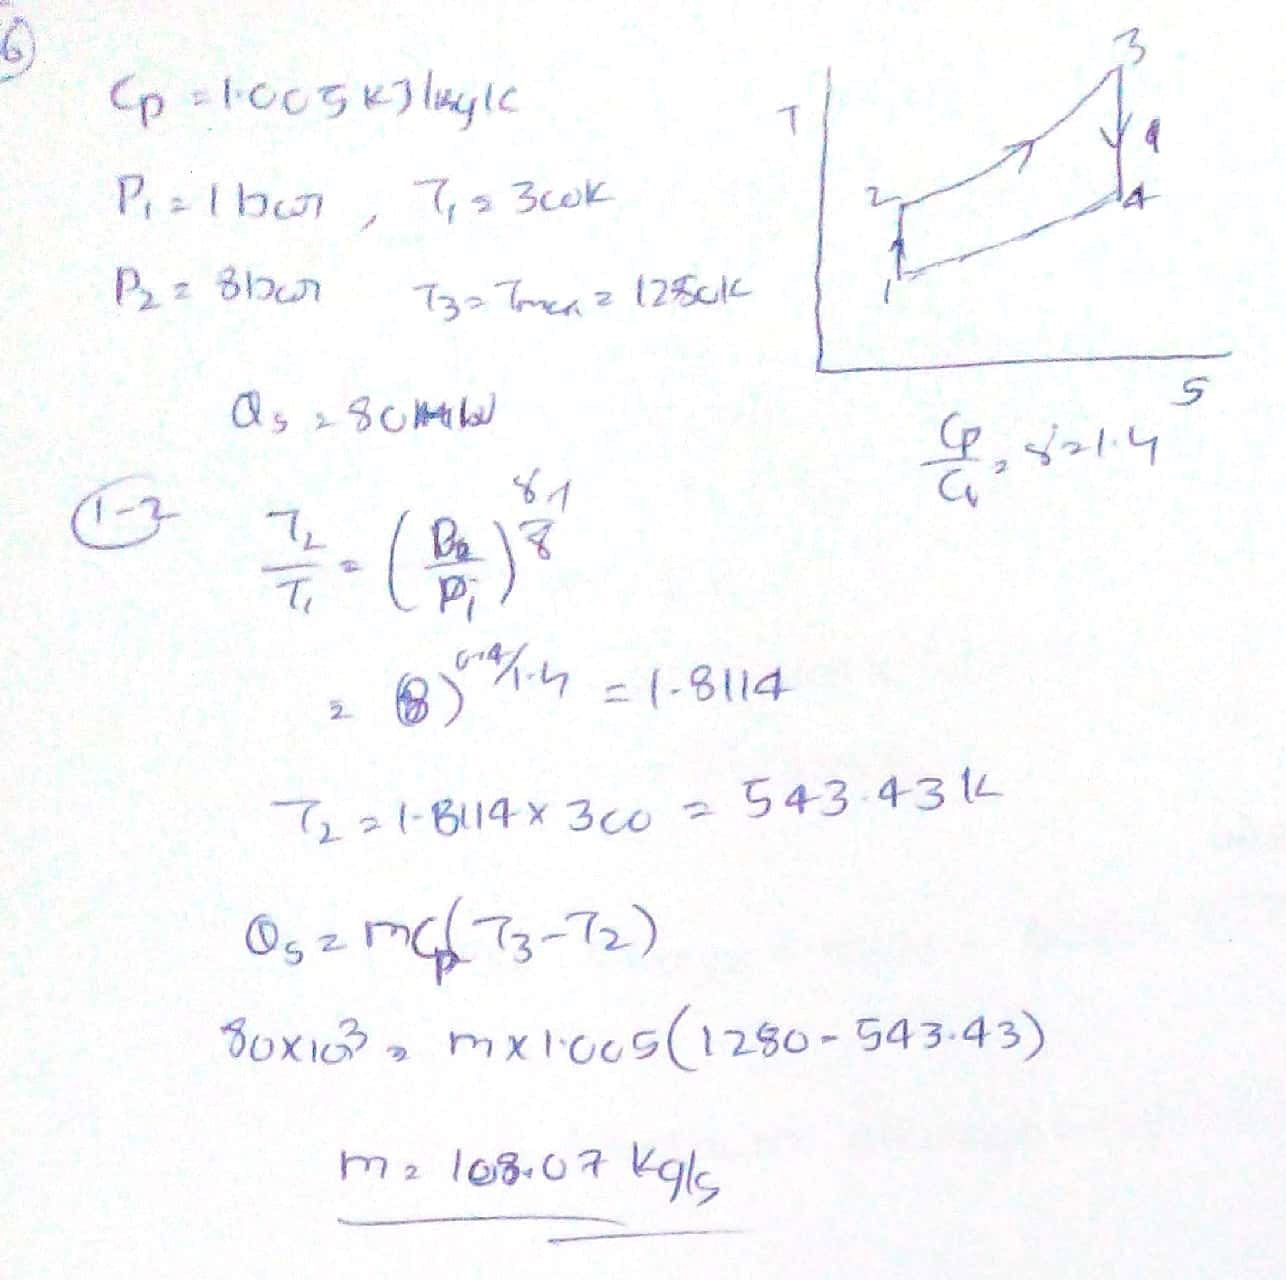 6
Cp = 1.005 kJ/kg/K
P₁ = 1 bar, T₁ = 300K
P₂ = 8 bar T₃ = Tmax = 1280K
Qs = 80 MW
T
3
2
4
1
S
Cp/Cv = γ = 1.4
1-2 T₂/T₁ = (P₂/P₁)^(γ-1)/γ
= (8)^0.4/1.4 = 1.8114
T₂ = 1.8114 x 300 = 543.43 K
Qs = mCp(T₃-T₂)
80x10³ = m x 1.005(1280-543.43)
m = 108.07 kg/s